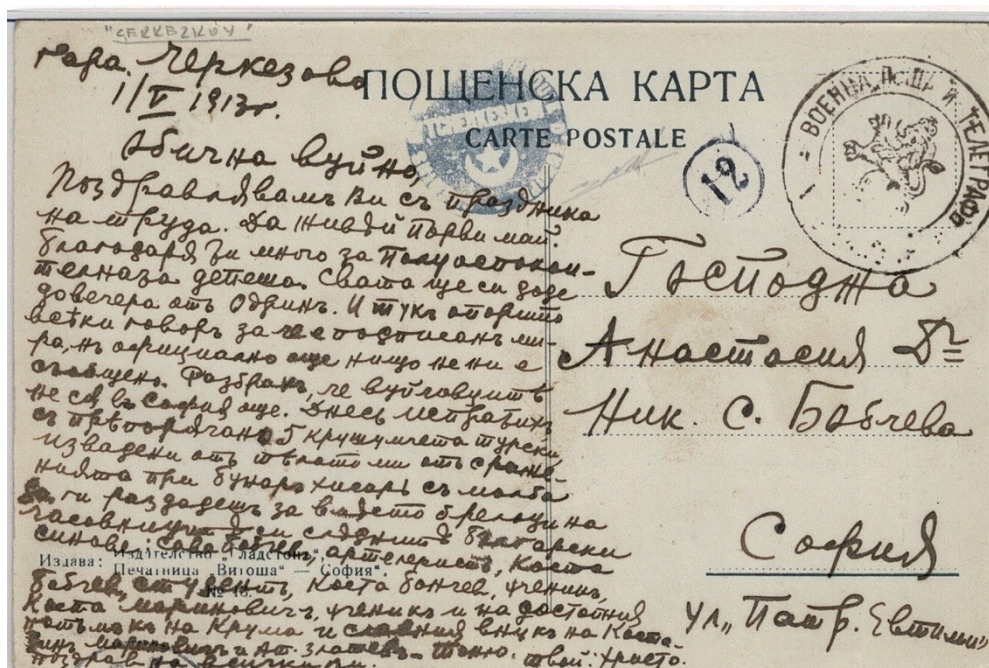 "CERKEZKÖY"
гара. Черкезово
1/V 1913г.
ПОЩЕНСКА КАРТА
CARTE POSTALE
ВОЕННА П. И ТЕЛЕГРАФ
12
Обична вуйно,
Поздравлявамъ Ви съ праздника
на труда. Да живѣй Първи май.
Благодаря ти много за
депеша. Свата ще си доде
довечера отъ Одринъ. И тукъ
всѣки говоръ за че е подписанъ ми-
ра, нъ официално още нищо не ни е
съобщено. Разбрахъ, че
не сѫ въ София още. Днесь испратихъ
съ 5 крушумчета турски,
извадени отъ тѣлото ми отъ сраже-
нията при Бунаръ Хисаръ съ молба
да ги раздадешъ за брелоци на
си следнитѣ български
синове: Сава Бобчев, артелеристъ, Коста
Бобчев, студентъ, Коста Бончев, ученикъ,
Коста Мариновичъ, ученикъ и на достойния
потъмъкъ на Крума и славния внукъ на Коста-
Мариновичъ и Ат. Златевъ - Тоню.
поздрав на всички ви. твой: Христо.
Издава: Издателство "Гладстонъ",
Печатница "Витоша" — София.
№ 18.
Господжа
Анастасия Д-ръ
Ник. С. Бобчева
София
ул. "Патр. Евтимий"